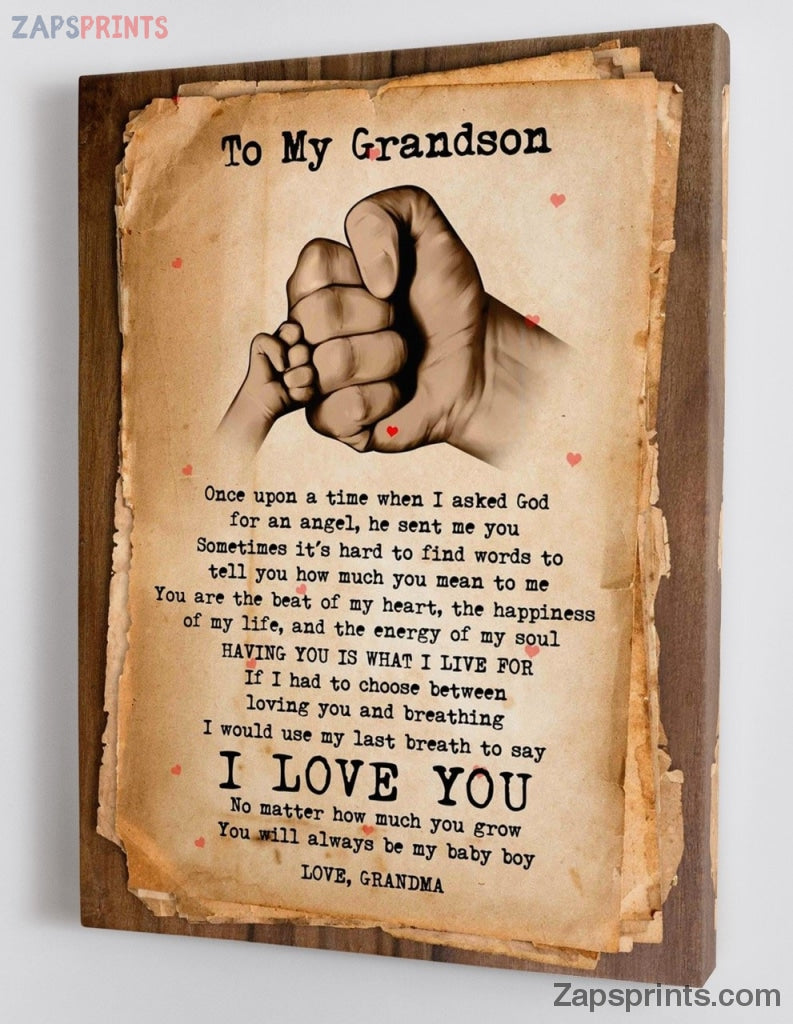 ZAPSPRINTS
To My Grandson
Once upon a time when I asked God
for an angel, he sent me you
Sometimes it's hard to find words to
tell you how much you mean to me
You are the beat of my heart, the happiness
of my life, and the energy of my soul
HAVING YOU IS WHAT I LIVE FOR
If I had to choose between
loving you and breathing
I would use my last breath to say
I LOVE YOU
No matter how much you grow
You will always be my baby boy
LOVE, GRANDMA
Zapsprints.com